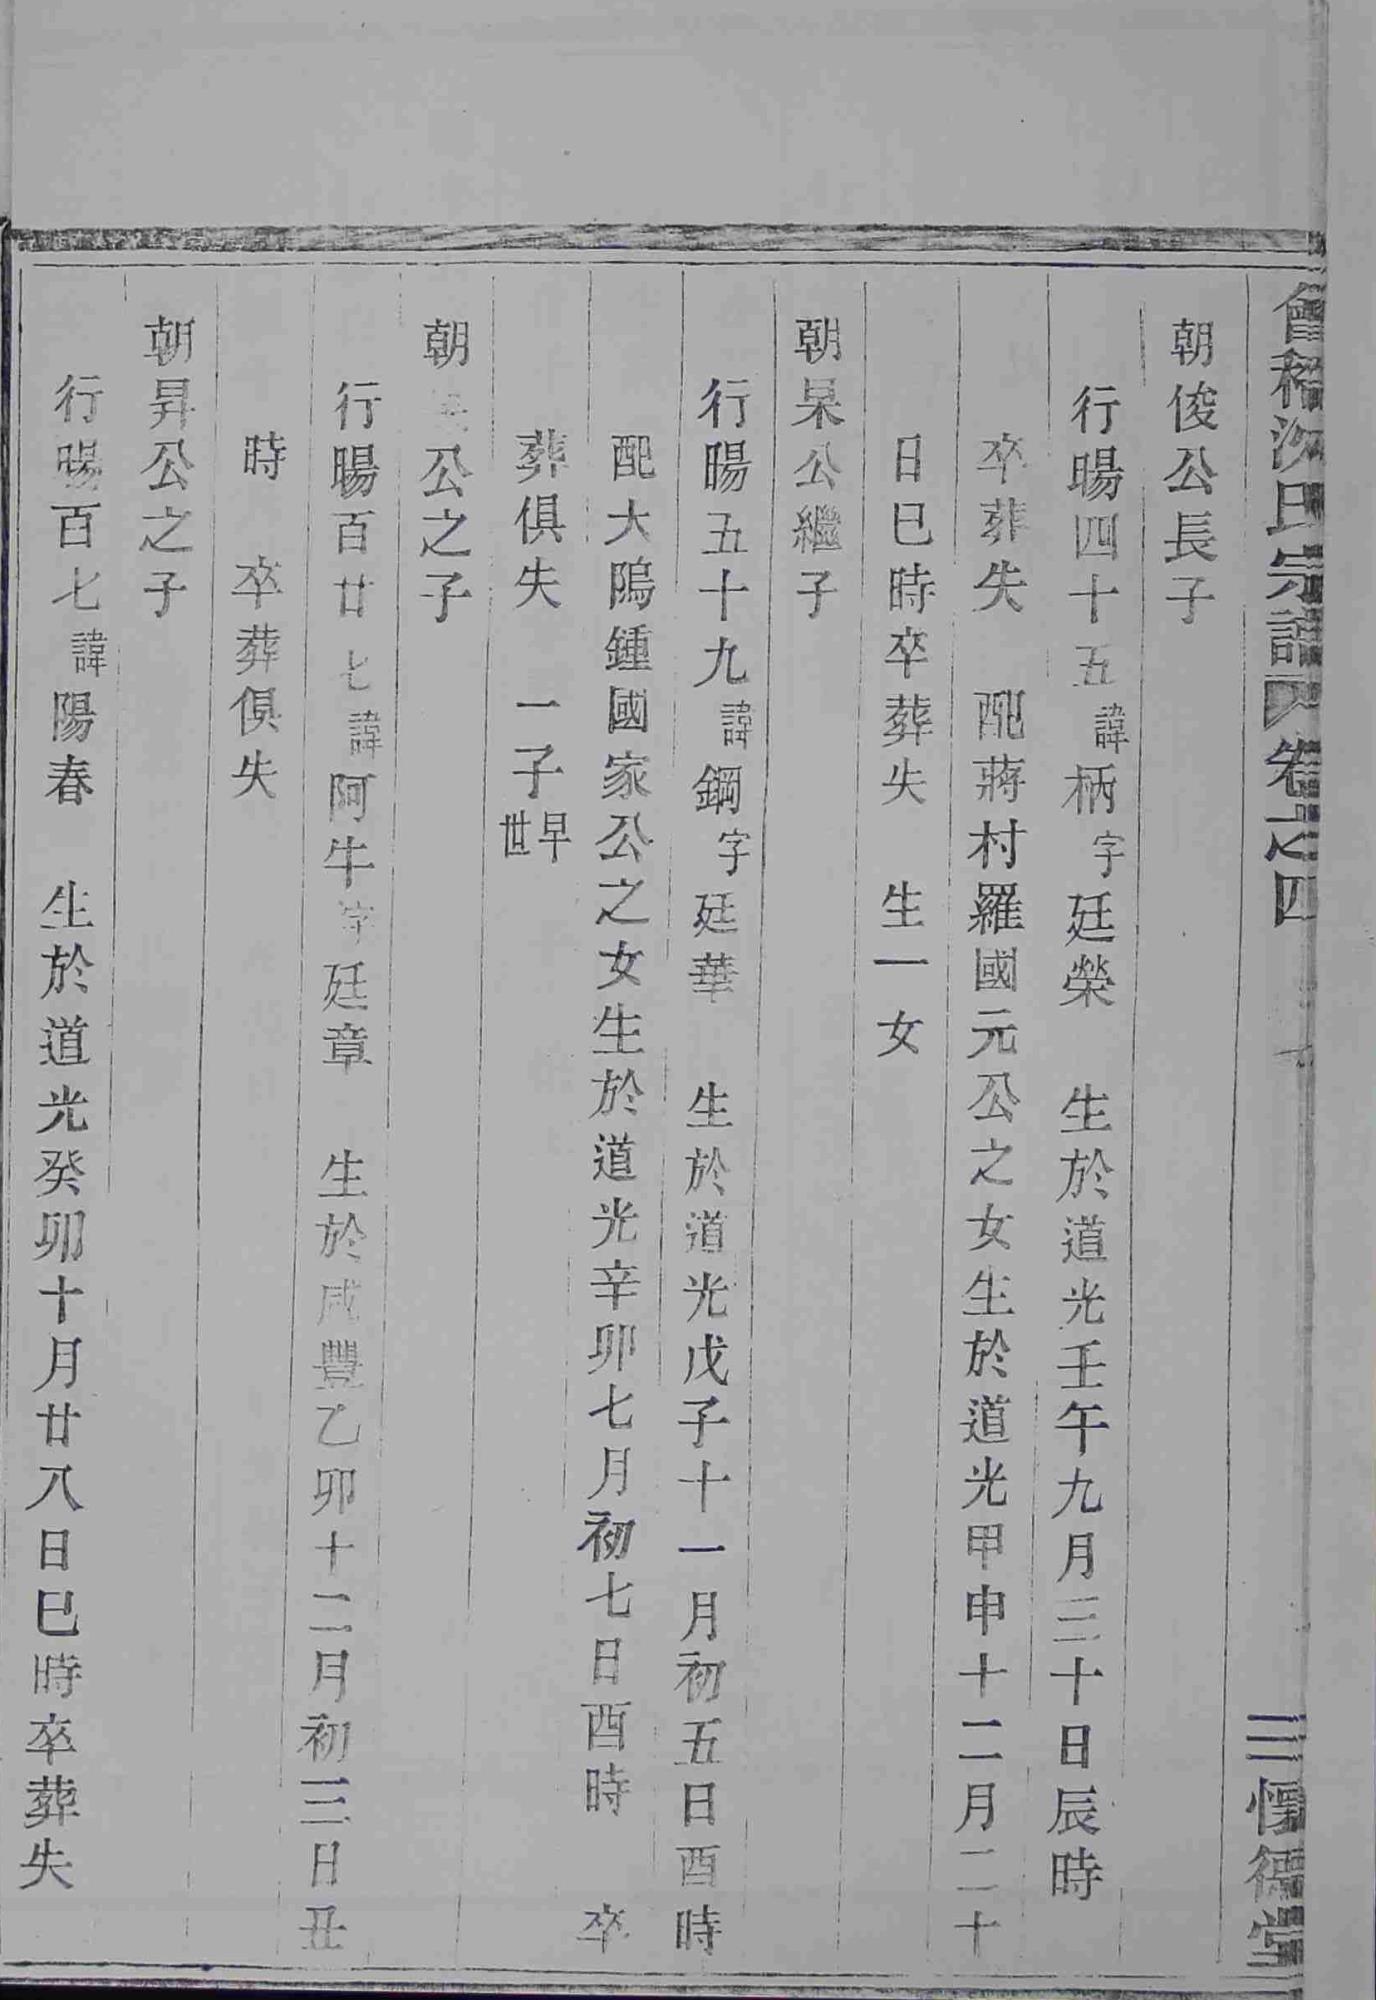 會稽沈氏宗譜 卷之四
三 德堂
朝俊公長子
行暘四十五諱柄字廷榮 生於道光壬午九月三十日辰時
卒葬失 配蔣村羅國元公之女生於道光甲申十二月二十
日巳時卒葬失 生一女
朝杲公繼子
行暘五十九諱鋼字廷華 生於道光戊子十一月初五日酉時
配大隖鍾國家公之女生於道光辛卯七月初七日酉時 卒
葬俱失 一子早世
朝 公之子
行暘百廿七諱阿牛字廷章 生於咸豐乙卯十二月初三日丑
時 卒葬俱失
朝昇公之子
行暘百七諱陽春 生於道光癸卯十月廿八日巳時卒葬失